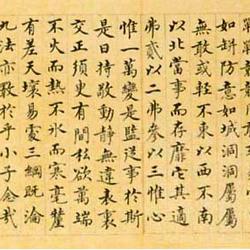 如缾防意如城洞洞屬屬
無敢或輕不東以西不南
以北當事而存靡它其適
弗貳以二弗參以三惟心
惟一萬變是監從事於斯
是曰持敬動靜無違表裏
交正須臾有間私欲萬端
不火而熱不氷而寒毫釐
有差天壤易處三綱既淪
九法亦斁於乎小子念哉